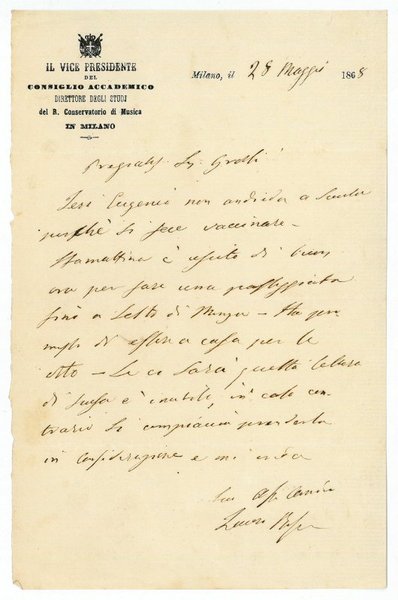 IL VICE PRESIDENTE
DEL
CONSIGLIO ACCADEMICO
DIRETTORE DEGLI STUDJ
del R. Conservatorio di Musica
IN MILANO
Milano, il 28 Maggio 1868
Pregiatis Sig.
Jeri Eugenio non andò a Scuola
perchè si fece vaccinare –
Stamattina è uscito di buon
ora per fare una passeggiata
fino a Sesto di Monza – Ha pro
messo di essere a casa per le
otto – Se ci sarà questa lettera
di scusa è inutile, in caso con
trario Si compiaccia prenderla
in considerazione e mi creda
Suo